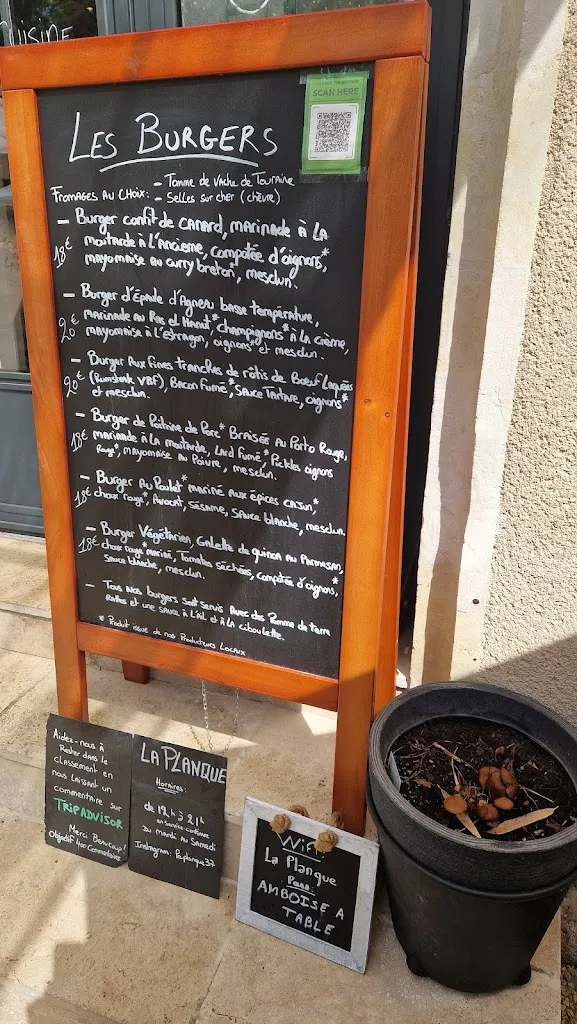 CUISINE
SCAN HERE
LES BURGERS
FROMAGES AU CHOIX: - Tomme de Vache de Touraine
- Selles sur cher (chèvre)
- Burger confit de CANARD, marinade à LA
moutarde à l'Ancienne, compotée d'oignons*,
mayonnaise au curry breton*, mesclun.
18€
- Burger d'Épaule d'Agneau basse température,
marinade au Ras el Hanut*, champignons* à la crème,
mayonnaise à l'estragon, oignons* et mesclun.
20€
- Burger Aux fines tranches de rôtis de Bœuf Laquées
(Rumsteak VBF), Bacon Fumé*, Sauce Tartare, oignons*
et mesclun.
20€
- Burger de Poitrine de Porc* BRAISÉE AU Porto Rouge,
marinade à LA moutarde, Lard Fumé*, Pickles oignons
Rouge*, mayonnaise au Poivre, mesclun.
18€
- Burger Au Poulet* mariné Aux épices cajun*,
choux rouge*, Avocat, Sésame, Sauce blanche, mesclun.
18€
- Burger Végétarien, Galette de quinoa au Parmesan,
choux rouge* mariné, Tomates Séchées, compotée d'oignons*,
Sauce blanche, mesclun.
18€
- Tous nos burgers sont servis Avec des Pomme de terre
Rattes et une sauce à l'Ail et à la ciboulette.
* Produit issue de nos Producteurs LOCAUX
Aidez-nous à
Rester dans le
classement en
nous laissant un
commentaire sur
TRIPADVISOR
Merci Beaucoup!
Objectif 400 Commentaires
LA PLANQUE
Horaires:
de 12h à 21h
en service continue
Du mardi au Samedi
Instagram: Laplanque37
Wifi
La Planque
Pass:
AMBOISE A
TABLE